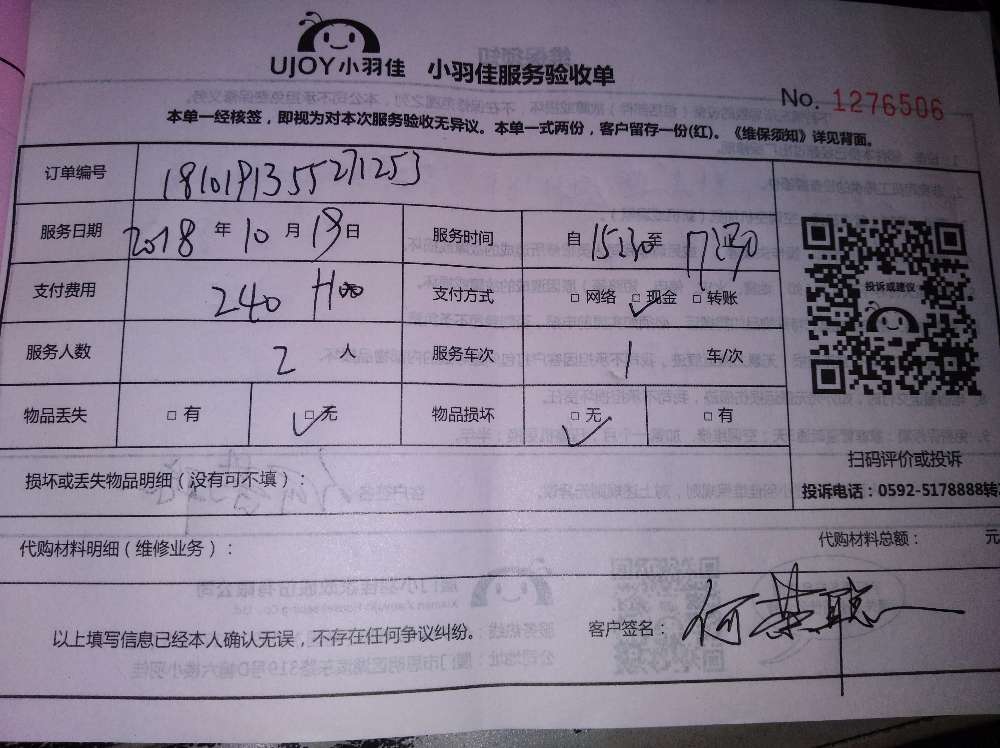 UJOY小羽佳 小羽佳服务验收单
No. 1276506
本单一经核签，即视为对本次服务验收无异议。本单一式两份，客户留存一份(红)。《维保须知》详见背面。
订单编号 1810191355271253
服务日期 2018 年 10 月 19 日 服务时间 自 15:30 至 17:30
支付费用 240 支付方式 □网络 □现金 □转账
投诉或建议
服务人数 2 人 服务车次 1 车/次
物品丢失 □有 □无 物品损坏 □无 □有
扫码评价或投诉
损坏或丢失物品明细（没有可不填）：
投诉电话：0592-5178888转
代购材料明细（维修业务）： 代购材料总额： 元
以上填写信息已经本人确认无误，不存在任何争议纠纷。 客户签名：何荣聪